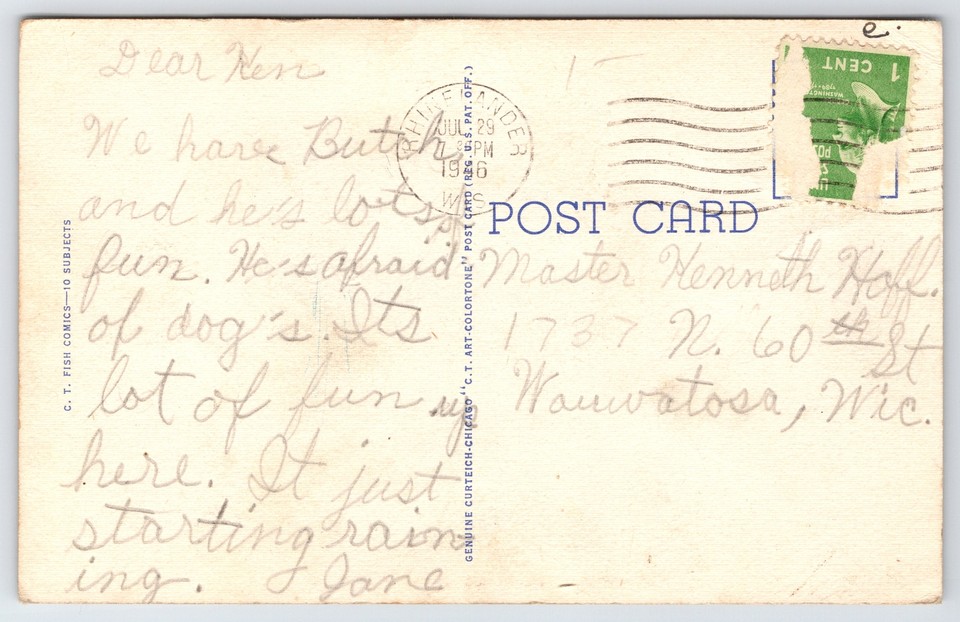 Dear Ken
We have Butch,
and he's lots
fun. He's afraid
of dog's. Its
lot of fun up
here. It just
starting rain
ing. Jane
C. T. FISH COMICS—10 SUBJECTS
GENUINE CURTEICH-CHICAGO "C.T. ART-COLORTONE" POST CARD (REG. U.S. PAT. OFF.)
RHINELANDER
JUL 29
PM
1946
WIS.
e.
1 CENT
WASHINGTON
POST CARD
Master Kenneth
1737 N. 60th St
Wauwatosa, Wic.